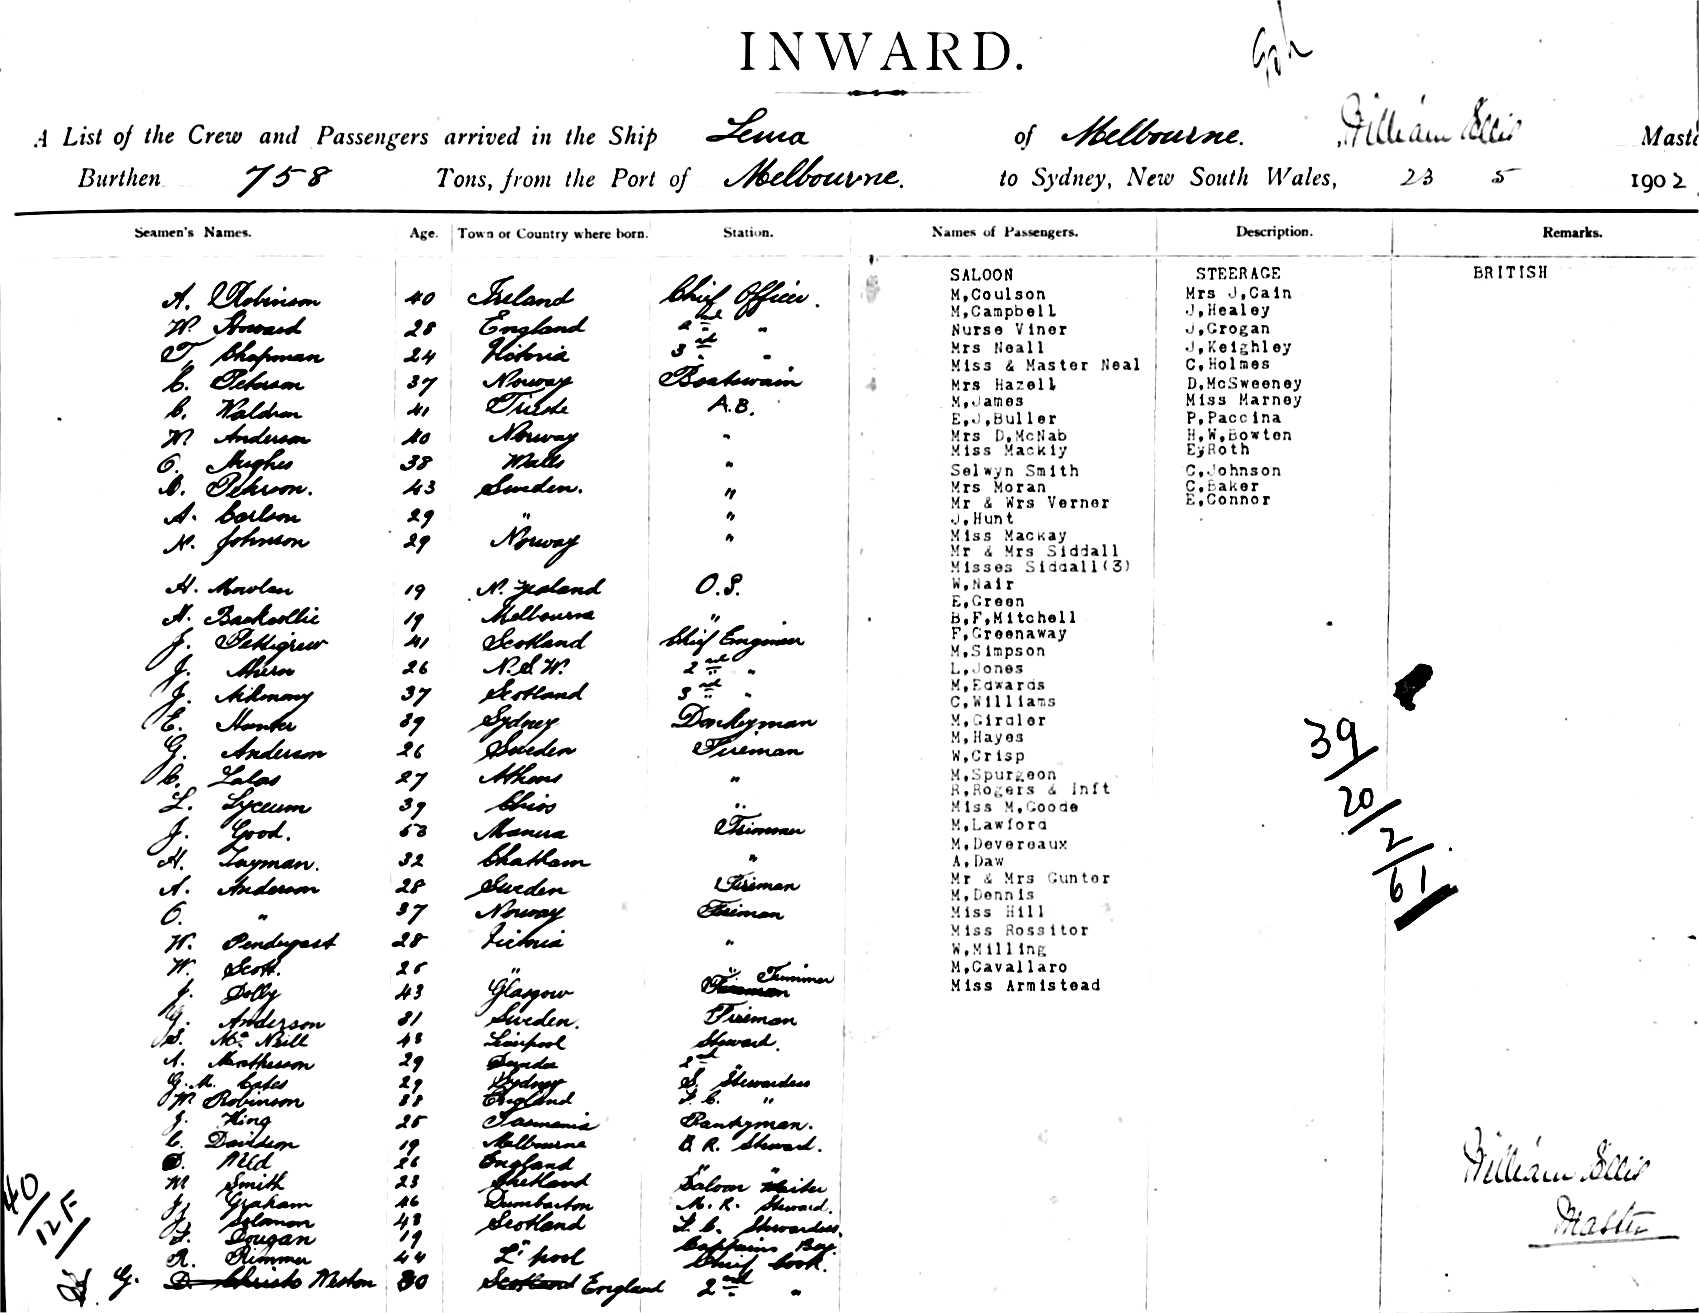 INWARD.
A List of the Crew and Passengers arrived in the Ship Lema of Melbourne. William Ellis Maste
Burthen 758 Tons, from the Port of Melbourne. to Sydney, New South Wales, 23 5 1902
Seamen's Names. Age. Town or Country where born. Station. Names of Passengers. Description. Remarks.
SALOON STEERAGE BRITISH
A. Robinson 40 Ireland Chief Officer.
W. Howard 28 England 2nd "
T. Chapman 24 Victoria 3rd "
C. Peterson 37 Norway Boatswain
C. Waldron 41 A.B.
W. Anderson 40 Norway "
O. Hughes 38 Wales "
Pehrson. 43 Sweden. "
A. Carlson 29 " "
N. Johnson 29 Norway "
H. 19 N. Zealand O.S.
19 Melbourne "
J. Pettigrew 41 Scotland Chief Engineer
J. Ahern 26 N.S.W. 2nd "
J. 37 Scotland 3rd "
E. Hunter 39 Sydney Donkeyman
G. Anderson 26 Sweden Fireman
C. Lalas 27 Athens "
L. Lyceum 39 Chios "
J. Good. 53 Trimmer
H. Tayman. 32 Chatham "
A. Anderson 28 Sweden Fireman
O. " 37 Norway Fireman
W. Pendergast 28 Victoria "
W. Scott. 25 " " Trimmer
J. Dolly 43 Glasgow Fireman
G. Anderson 31 Sweden. Fireman
S. McNeill 43 Liverpool Steward.
A. Mathieson 29 2nd "
G.M. Cates 29 Sydney S. Stewardess
W. Robinson 38 England F.C. "
J. King 25 Tasmania Pantryman.
C. Davidson 19 Melbourne B.R. Steward.
D. 26 England "
W. Smith 23 Shetland Saloon Waiter
J. Graham 46 Dumbarton M.R. Steward.
J. Solomon 48 Scotland F.C. Stewardess.
F. Dougan 19 " Captains Boy.
R. Rimmer 44 L'pool Chief Cook.
G. Weston 30 Scotland England 2nd "
M,Coulson Mrs J,Cain
M,Campbell J,Healey
Nurse Viner J,Grogan
Mrs Neall J,Keighley
Miss & Master Neal C,Holmes
Mrs Hazell D,McSweeney
M,James Miss Marney
E,J,Buller P,Paccina
Mrs D,McNab H,W,Bowten
Miss Mackiy EyRoth
Selwyn Smith C,Johnson
Mrs Moran C,Baker
Mr & Wrs Verner E,Connor
J,Hunt
Miss Mackay
Mr & Mrs Siddall
Misses Siddall(3)
W,Nair
E,Green
B,F,Mitchell
F,Greenaway
M,Simpson
L,Jones
M,Edwards
C,Williams
M,Girdler
M,Hayes
W,Crisp
M,Spurgeon
R,Rogers & Inft
Miss M,Goode
M,Lawford
M,Devereaux
A,Daw
Mr & Mrs Gunter
M,Dennis
Miss Hill
Miss Rossitor
W,Milling
M,Cavallaro
Miss Armistead
39/20/2/61
40/125
William Ellis
Master